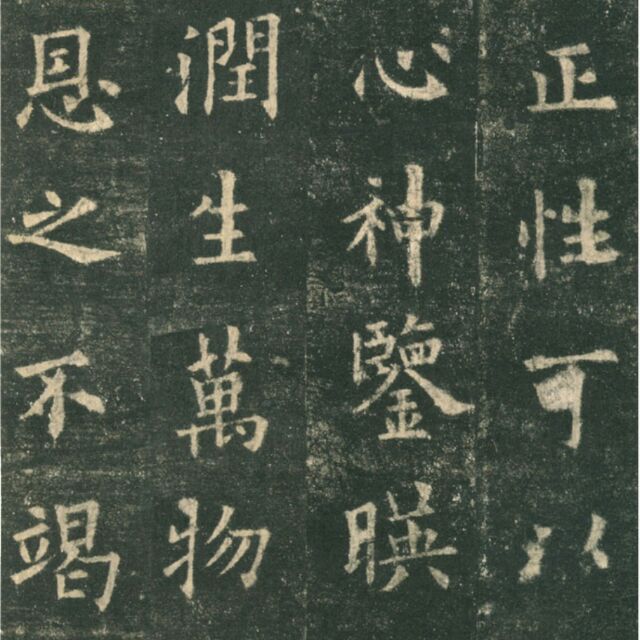 正性可以
心神鑒暎
潤生萬物
恩之不竭